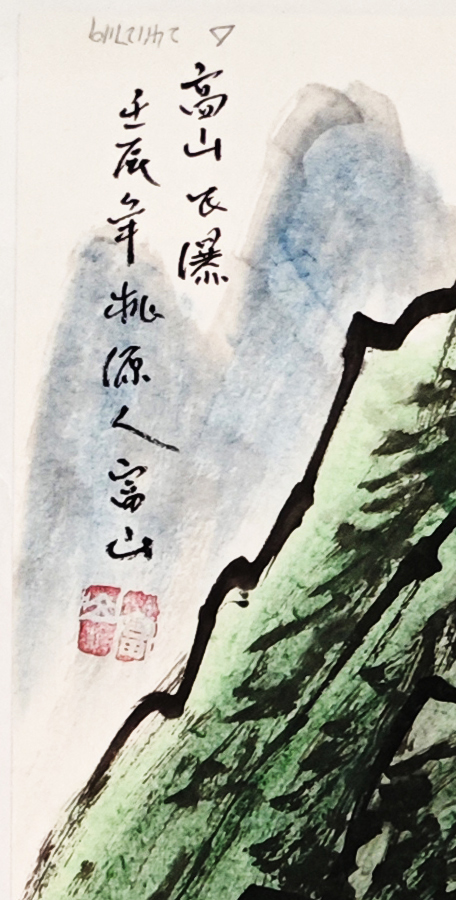 高山飞瀑
壬辰年桃源人富山